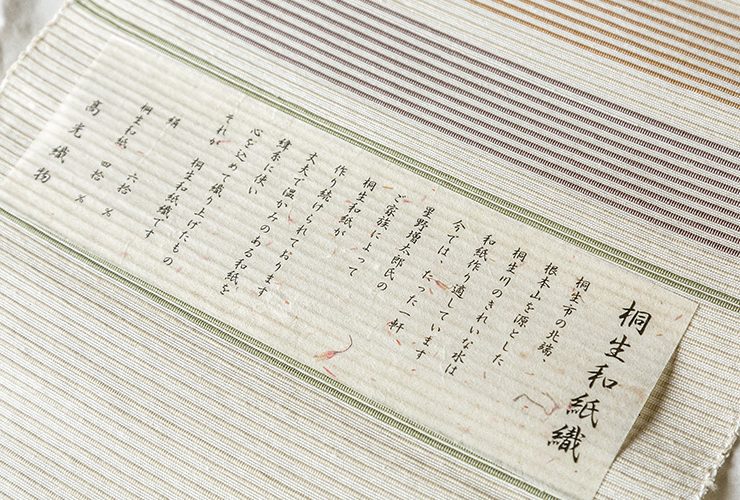 桐生和紙織
桐生市の北端、
根本山を源とした
桐生川のきれいな水は
和紙作り適しています
今では、たった一軒
星野増太郎氏の
ご家族によって
桐生和紙が
作り続けられております
丈夫で温かみのある和紙を
緯糸に使い
心を込めて織り上げたもの
それが
桐生和紙織です
絹 六拾 %
桐生和紙 四拾 %
高光織物